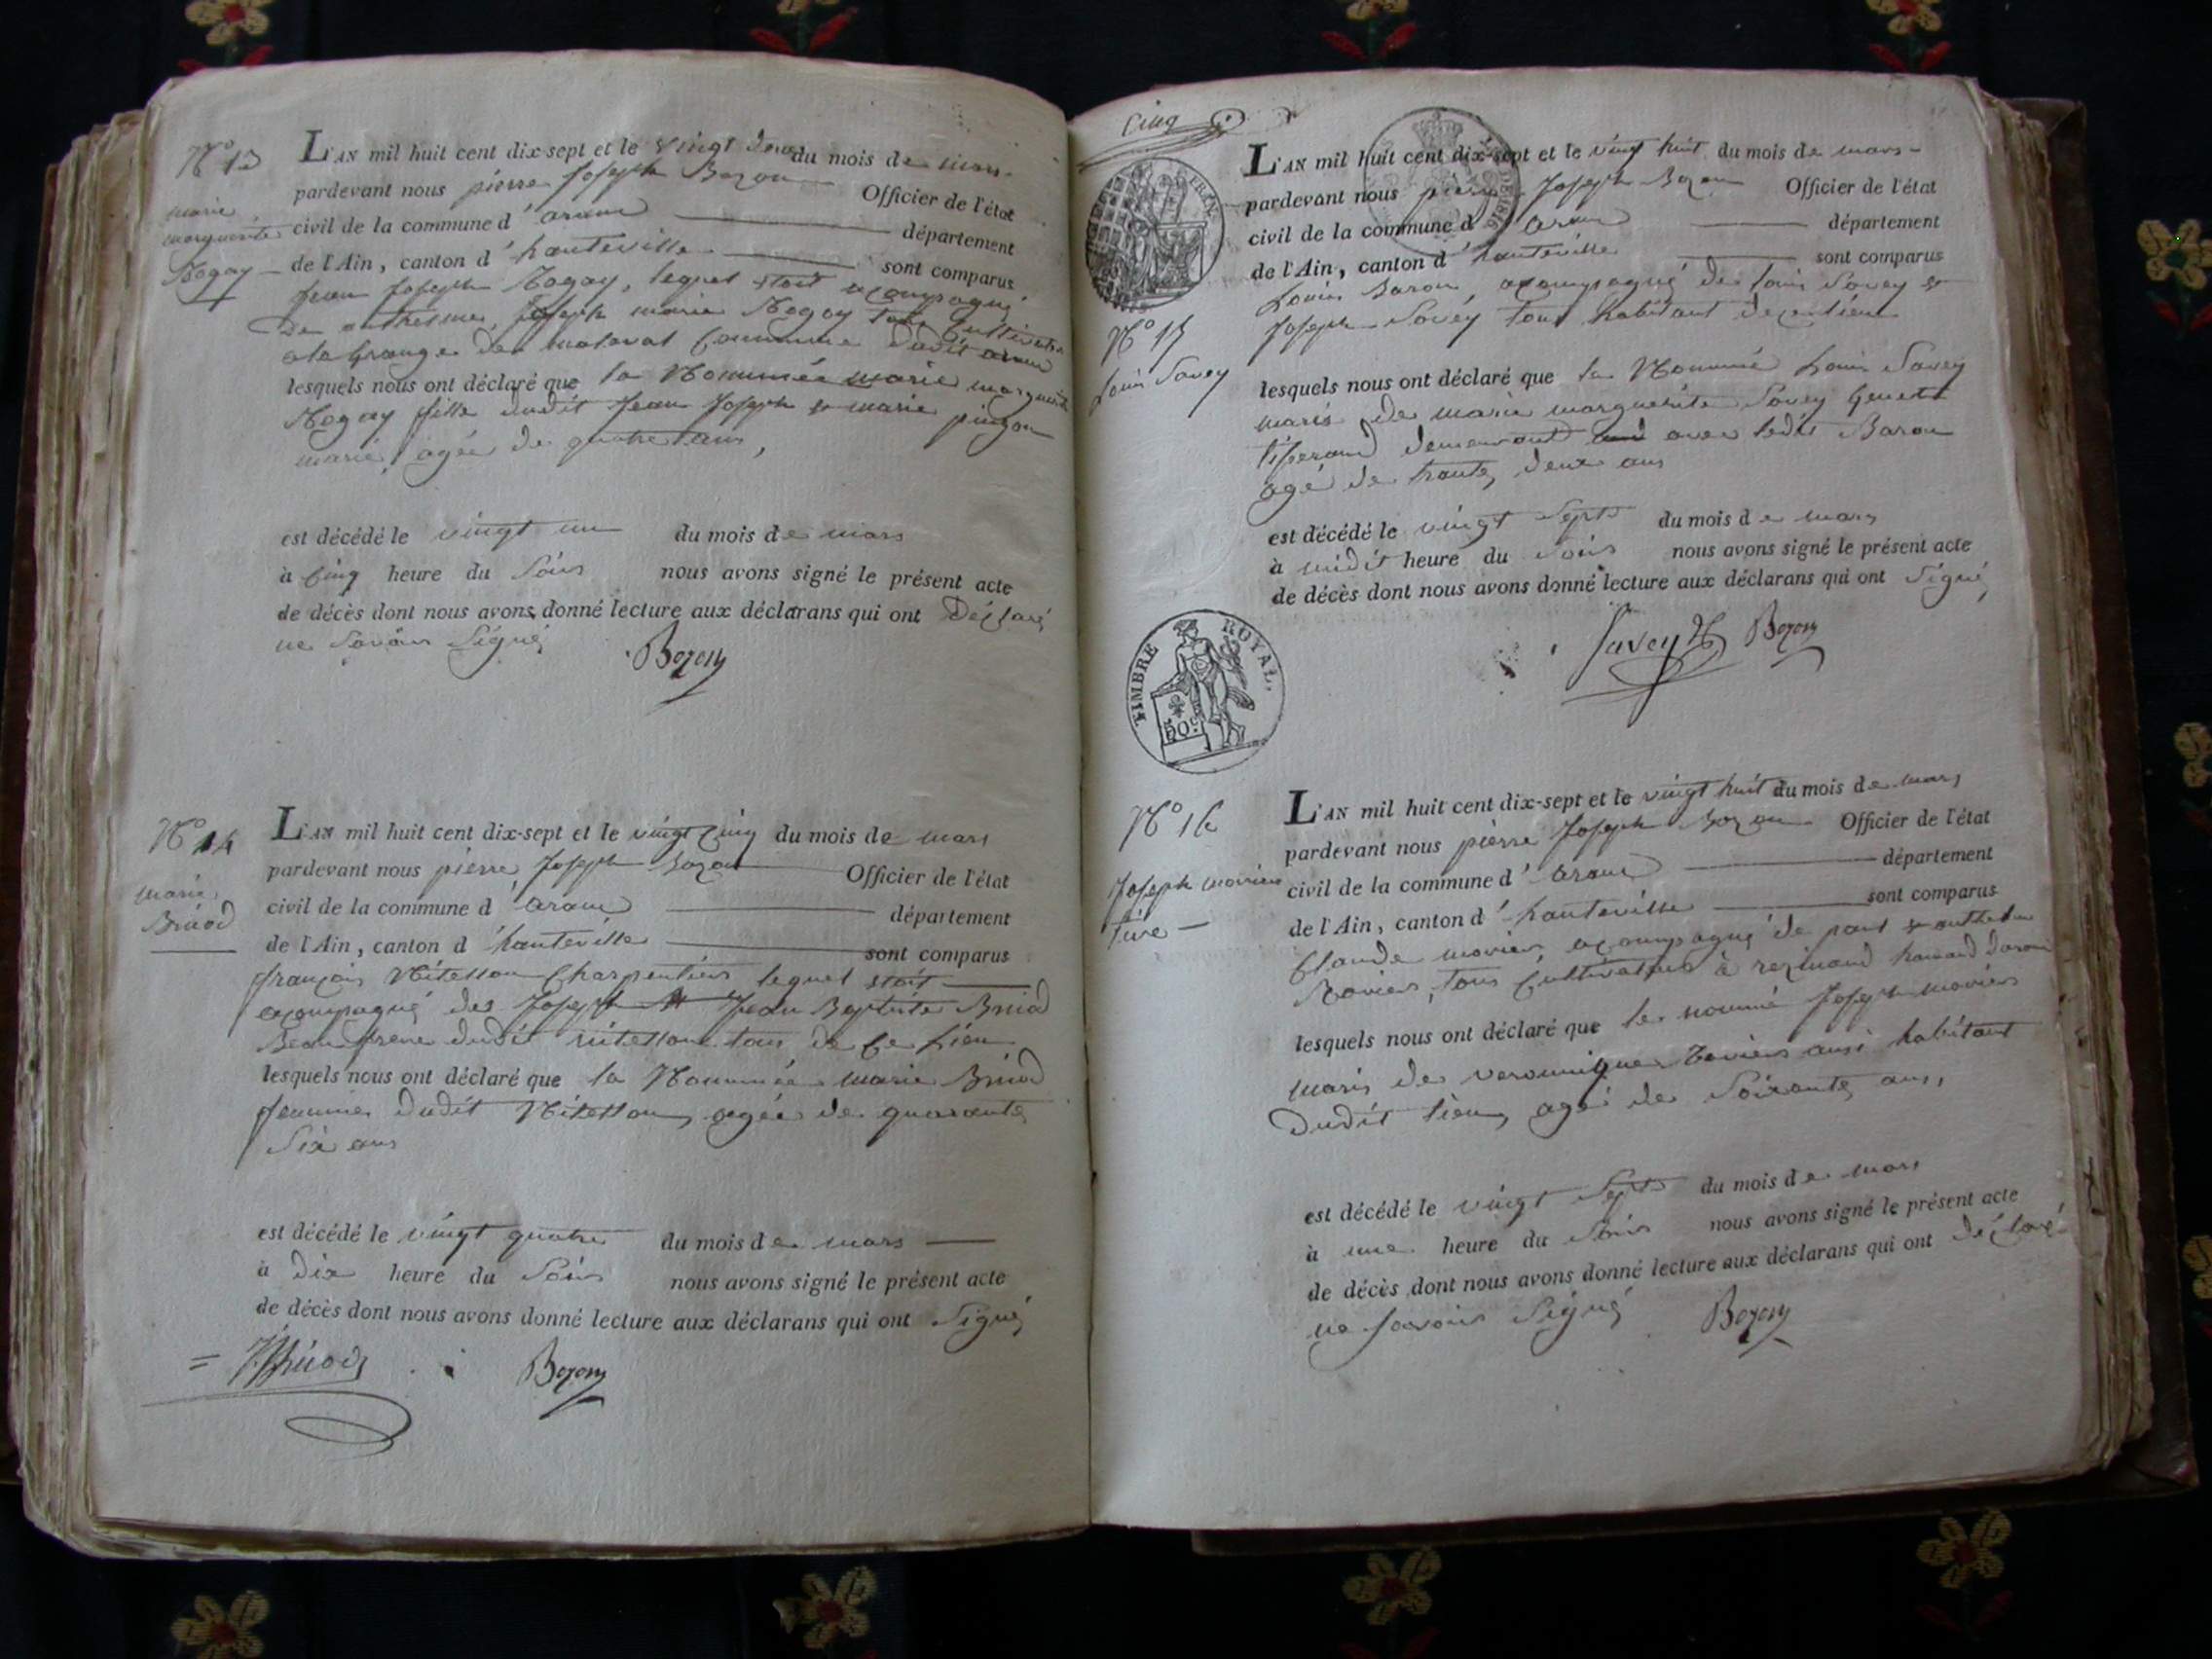 N° 13
marie
marguerite
Nogay
L'AN mil huit cent dix-sept et le vingt deux du mois de mars
pardevant nous pierre Joseph Bozon Officier de l'état
civil de la commune d'aranc département
de l'Ain, canton d'hauteville sont comparus
Jean Joseph Nogay, lequel etoit acompagné
De anthelme, Joseph marie Nogay tous Cultivateurs
a la Grange de malaval Commune dudit aranc
lesquels nous ont déclaré que la Nommée marie marguerite
Nogay fille dudit Jean Joseph et marie pingon
mariés, agée de quatre ans,
est décédé le vingt un du mois de mars
à Cinq heure du Soir nous avons signé le présent acte
de décès dont nous avons donné lecture aux déclarans qui ont Déclaré
ne Savoir Signé
Bozon
N° 14
marie
Briod
L'AN mil huit cent dix-sept et le vingt Cinq du mois de mars
pardevant nous pierre Joseph Bozon Officier de l'état
civil de la commune d'aranc département
de l'Ain, canton d'hauteville sont comparus
françois Charpentier lequel etoit
acompagné de Joseph Jean Baptiste Briod
Beau frere dudit tous de Ce Lieu
lesquels nous ont déclaré que la Nommée marie Briod
femme dudit agée de quarante
Six ans
est décédé le vingt quatre du mois de mars
à Dix heure du Soir nous avons signé le présent acte
de décès dont nous avons donné lecture aux déclarans qui ont Signé
Briod Bozon
Cinq
N° 15
Louis Savey
L'AN mil huit cent dix-sept et le vingt huit du mois de mars
pardevant nous pierre Joseph Bozon Officier de l'état
civil de la commune d'aranc département
de l'Ain, canton d'hauteville sont comparus
Louis Baron, acompagné de Louis Savey et
Joseph Savey tous habitant de ce lieu
lesquels nous ont déclaré que le Nommé Louis Savey
maris de marie marguerite Savey
tisserand demeurant avec ledit Baron
agé de trante deux ans
est décédé le vingt Sept du mois de mars
à midit heure du Soir nous avons signé le présent acte
de décès dont nous avons donné lecture aux déclarans qui ont Signé
Savey Bozon
TIMBRE ROYAL.
50c
N° 16
Joseph morier
L'AN mil huit cent dix-sept et le vingt huit du mois de mars
pardevant nous pierre Joseph Bozon Officier de l'état
civil de la commune d'aranc département
de l'Ain, canton d'hauteville sont comparus
Claude morier, acompagné de paul et anthelme
tous Cultivateurs à rezinand hameau daranc
lesquels nous ont déclaré que le nommé Joseph morier
maris de veronique aussi habitant
Dudit lieu, agé de Soixante ans,
est décédé le vingt Sept du mois de mars
à une heure du Soir nous avons signé le présent acte
de décès dont nous avons donné lecture aux déclarans qui ont déclaré
ne Savoir Signé Bozon